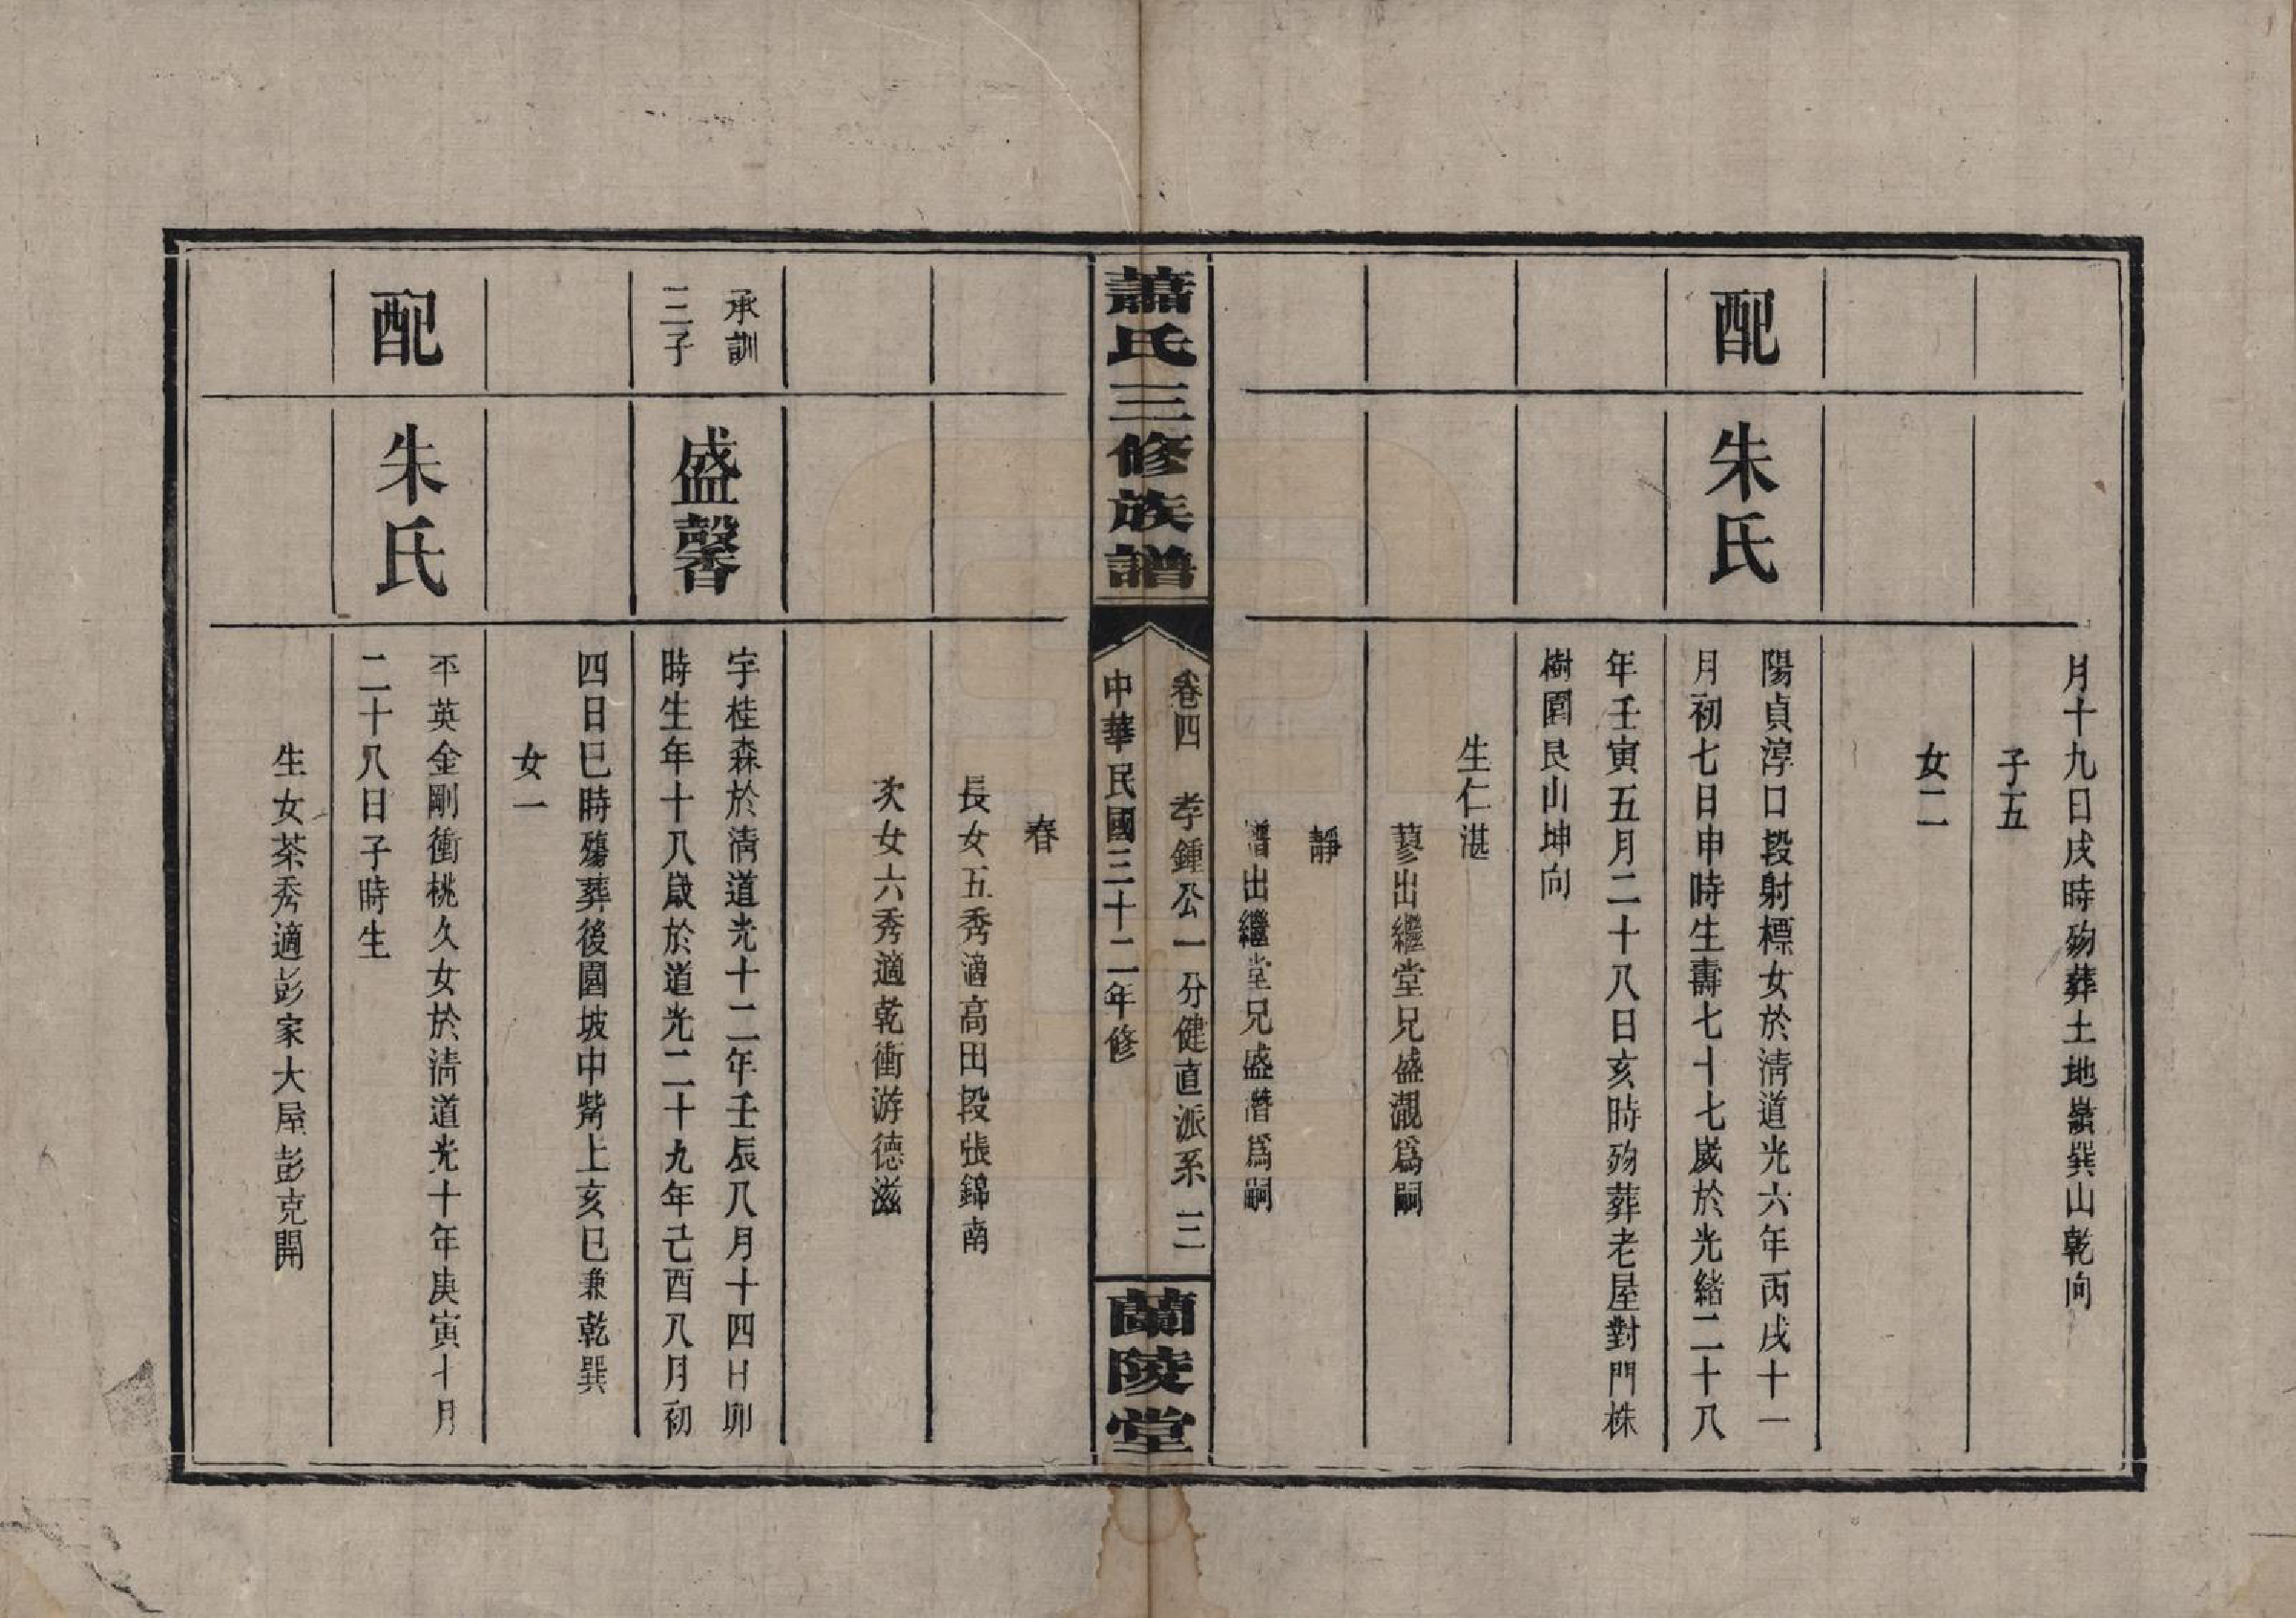 月十九日戌時歿葬土地嶺巽山乾向
子五
女二
配
朱氏
陽貞淳口段射標女於淸道光六年丙戌十一
月初七日申時生壽七十七歲於光緖二十八
年壬寅五月二十八日亥時歿葬老屋對門株
樹園艮山坤向
生仁湛
蓼出繼堂兄盛瀙爲嗣
靜
出繼堂兄盛潛爲嗣
蕭氏三修族譜
卷四 孝鍾公一分健直派系 三
中華民國三十二年修
蘭陵堂
春
長女五秀適高田段張錦南
次女六秀適乾衝游德滋
承訓
三子
盛馨
字桂森於淸道光十二年壬辰八月十四日卯
時生年十八歲於道光二十九年己酉八月初
四日巳時殤葬後園坡中嘴上亥巳兼乾巽
女一
配
朱氏
平英金剛衝桃久女於淸道光十年庚寅十月
二十八日子時生
生女茶秀適彭家大屋彭克開